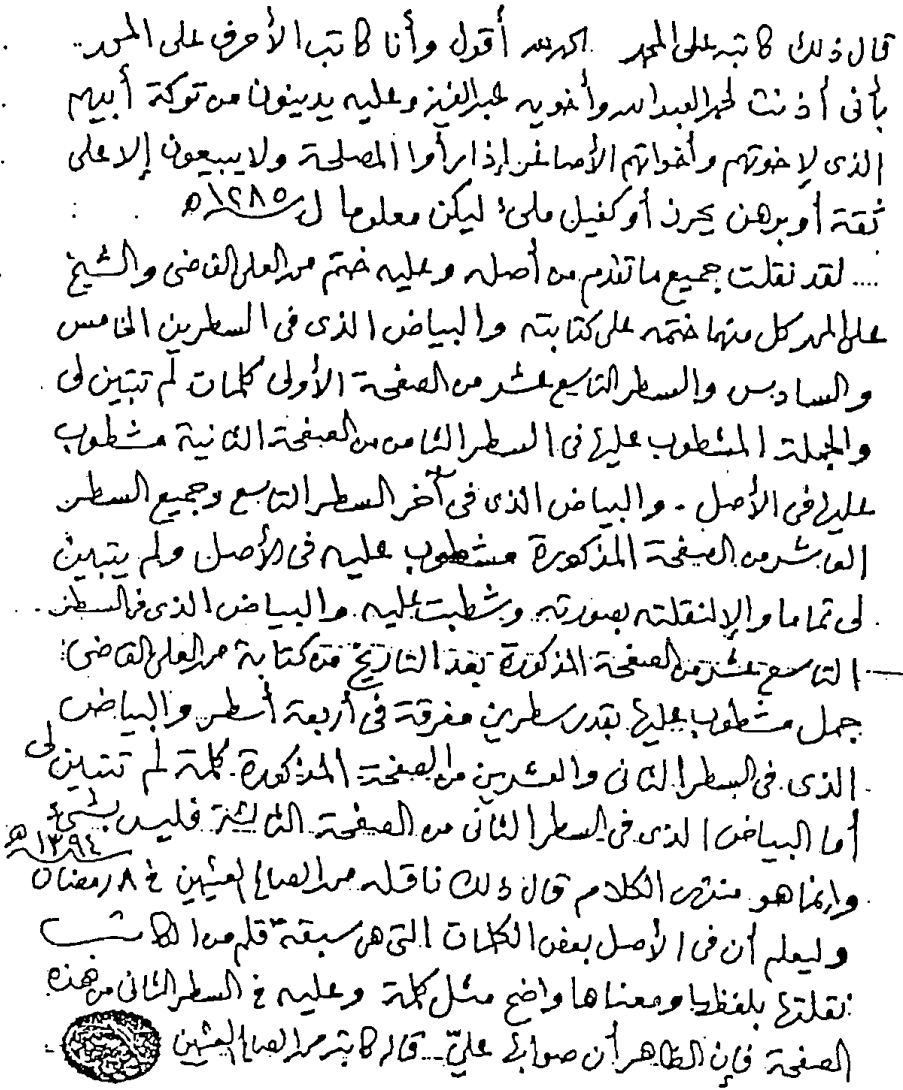 قال ذلك كاتبه علي المحمد الحمد لله أقول وأنا كاتب الأحرف علي المحمد
بأني أذنت لحمد العبد الله وأخويه عبد العزيز وعليه يدينون من تركة أبيهم
الذي لإخوتهم وأخواتهم الأصاغر إذا رأوا المصلحة ولا يبيعون إلا على
ثقة أو برهن يحرز أو كفيل ملئ ليكن معلوما ١٢٨٥هـ
.... لقد نقلت جميع ما تقدم من أصله وعليه ختم محمد العلي القاضي والشيخ
علي المحمد كل منهما ختمه على كتابته والبياض الذي في السطرين الخامس
والسادس والسطر التاسع عشر من الصفحة الأولى كلمات لم تتبين لي
والجملة المشطوب عليها في السطر الثامن من الصفحة الثانية مشطوب
عليها في الأصل . والبياض الذي في آخر السطر التاسع وجميع السطر
العاشر من الصفحة المذكورة مشطوب عليه في الأصل ولم يتبين
لي تماما وإلا لنقلته بصورته وشطبت عليه والبياض الذي في السطر
التاسع عشر من الصفحة المذكورة بعد التاريخ من كتابة محمد العلي القاضي
جمل مشطوب عليها بقدر سطرين مفرقة في أربعة أسطر والبياض
الذي في السطر الثاني والعشرين من الصفحة المذكورة كلمة لم تتبين لي
أما البياض الذي في السطر الثاني من الصفحة الثالثة فليس بشيء
وإنما هو منتهى الكلام قال ذلك ناقله محمد الصالح العثيمين في ٨ رمضان ١٣٩٤هـ
وليعلم أن في الأصل بعض الكلمات التي هي سبقة قلم من الكاتب
نقلتها بلفظها ومعناها واضح مثل كلمة وعليه في السطر الثاني من هذه
الصفحة فإن الظاهر أن صوابها عليّ . قاله كاتبه محمد الصالح العثيمين